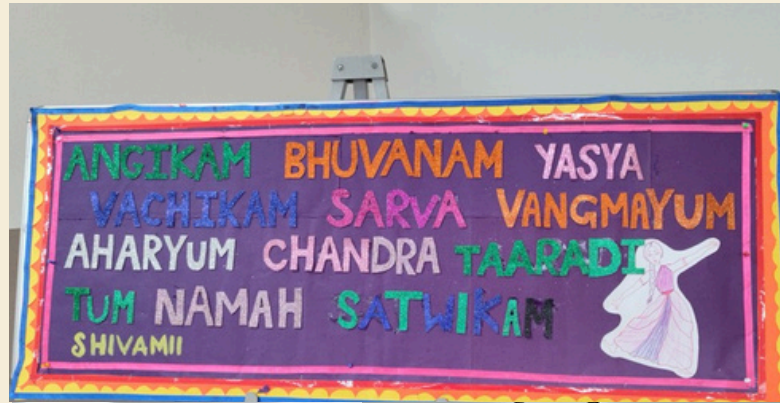 ANGIKAM BHUVANAM YASYA
VACHIKAM SARVA VANGMAYUM
AHARYUM CHANDRA TAARADI
TUM NAMAH SATWIKAM
SHIVAMII